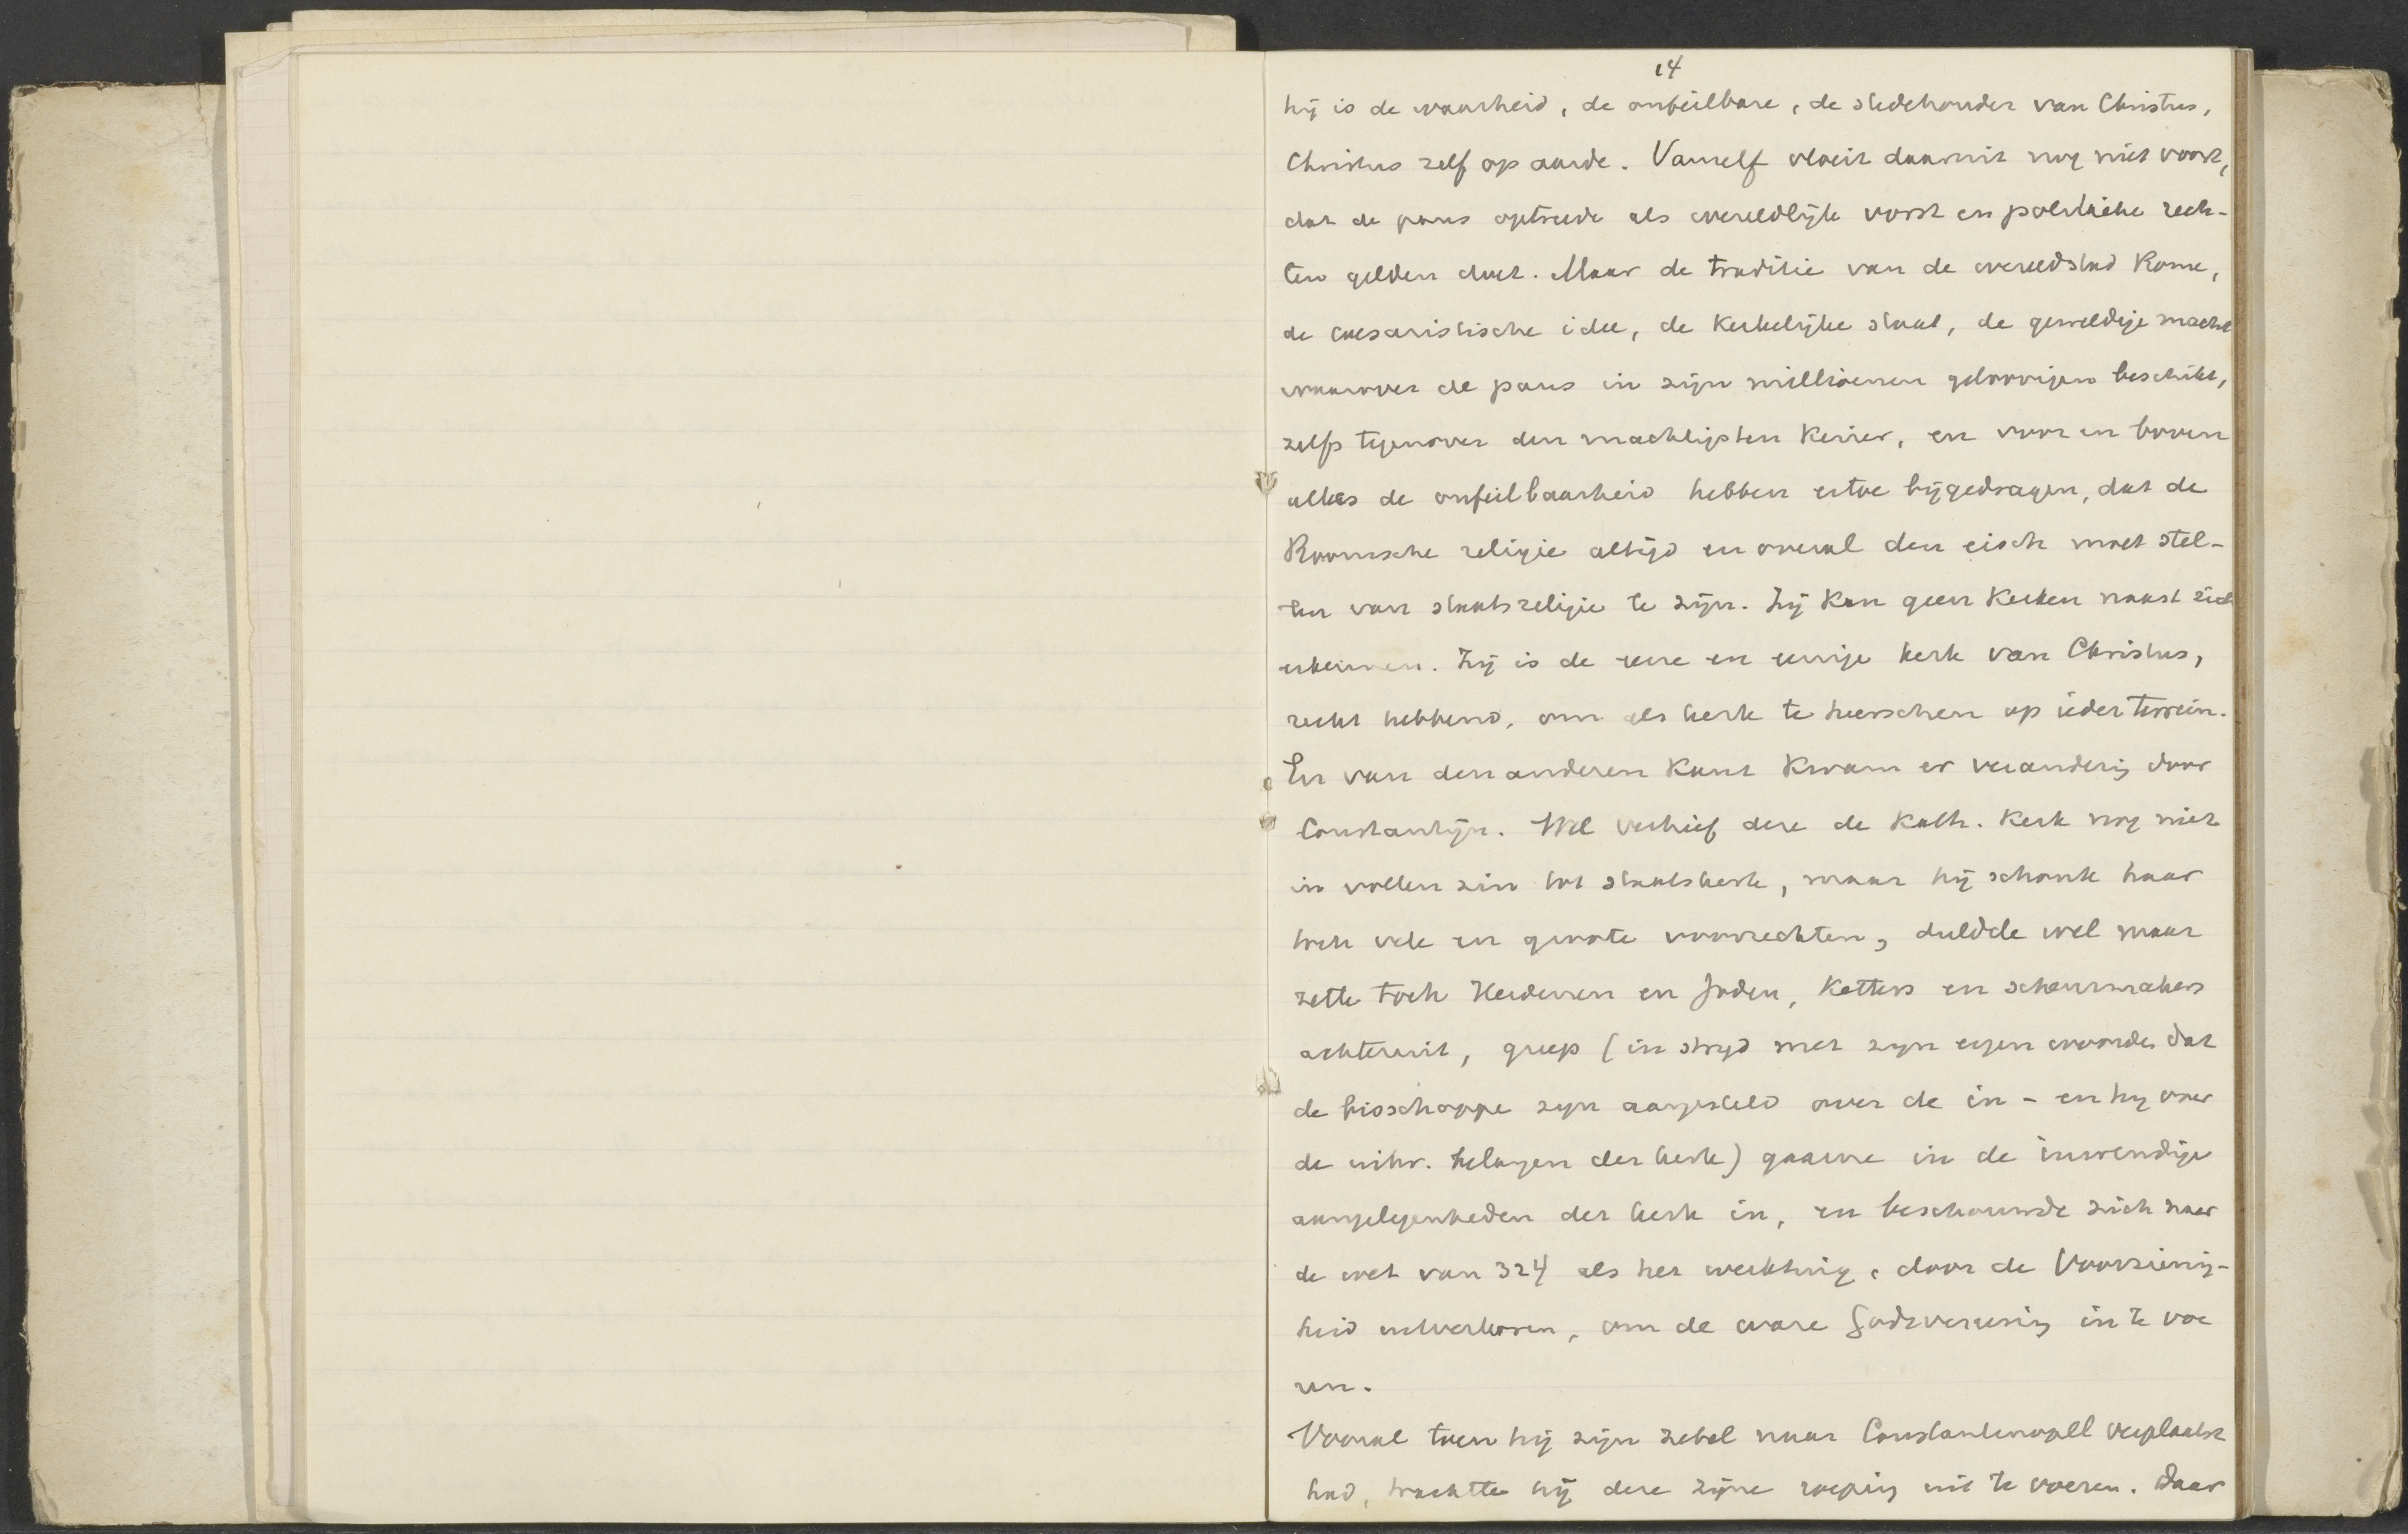 14
hij is de waarheid, de onfeilbare, de stedehouder van Christus,
Christus zelf op aarde. Vanzelf vloeit daaruit nog niet voort,
dat de paus optrede als wereldlijk vorst en politieke rech-
ten gelden doet. Maar de traditie van de wereldstad Rome,
de caesaristische idee, de Kerkelijke staat, de geweldige macht
waarover de paus in zijn millioenen geloovigen beschikt,
zelfs tegenover den machtigsten Keizer, en voor en boven
alles de onfeilbaarheid hebben ertoe bijgedragen, dat de
Roomsche religie altijd en overal den eisch moet stel-
len van staatsreligie te zijn. Zij Kan geen Kerken naast zich
erkennen. Zij is de eene en eenige kerk van Christus,
recht hebbend, om als kerk te heerschen op ieder terrein.
En van den anderen Kant Kwam er verandering door
Constantijn. Wel verhief deze de Kath. Kerk nog niet
in vollen zin tot staatskerk, maar hij schonk haar
toch vele en groote voorrechten, duldde wel maar
zette toch Heidenen en Joden, Ketters en scheurmakers
achteruit, greep (in strijd met zijn eigen woorden dat
de bisschoppe zijn aangesteld over de in- en hij over
de uitw. belangen der kerk) gaarne in de inwendige
aangelegenheden der kerk in, en beschouwde zich naar
de wet van 324 als het werktuig, door de Voorzienig-
heid uitverkoren, om de ware Godsvereering in te voe
ren.
Vooral toen hij zijn zetel naar Constantinopel verplaatst
had, trachtte hij deze zijne roeping uit te voeren. Daar